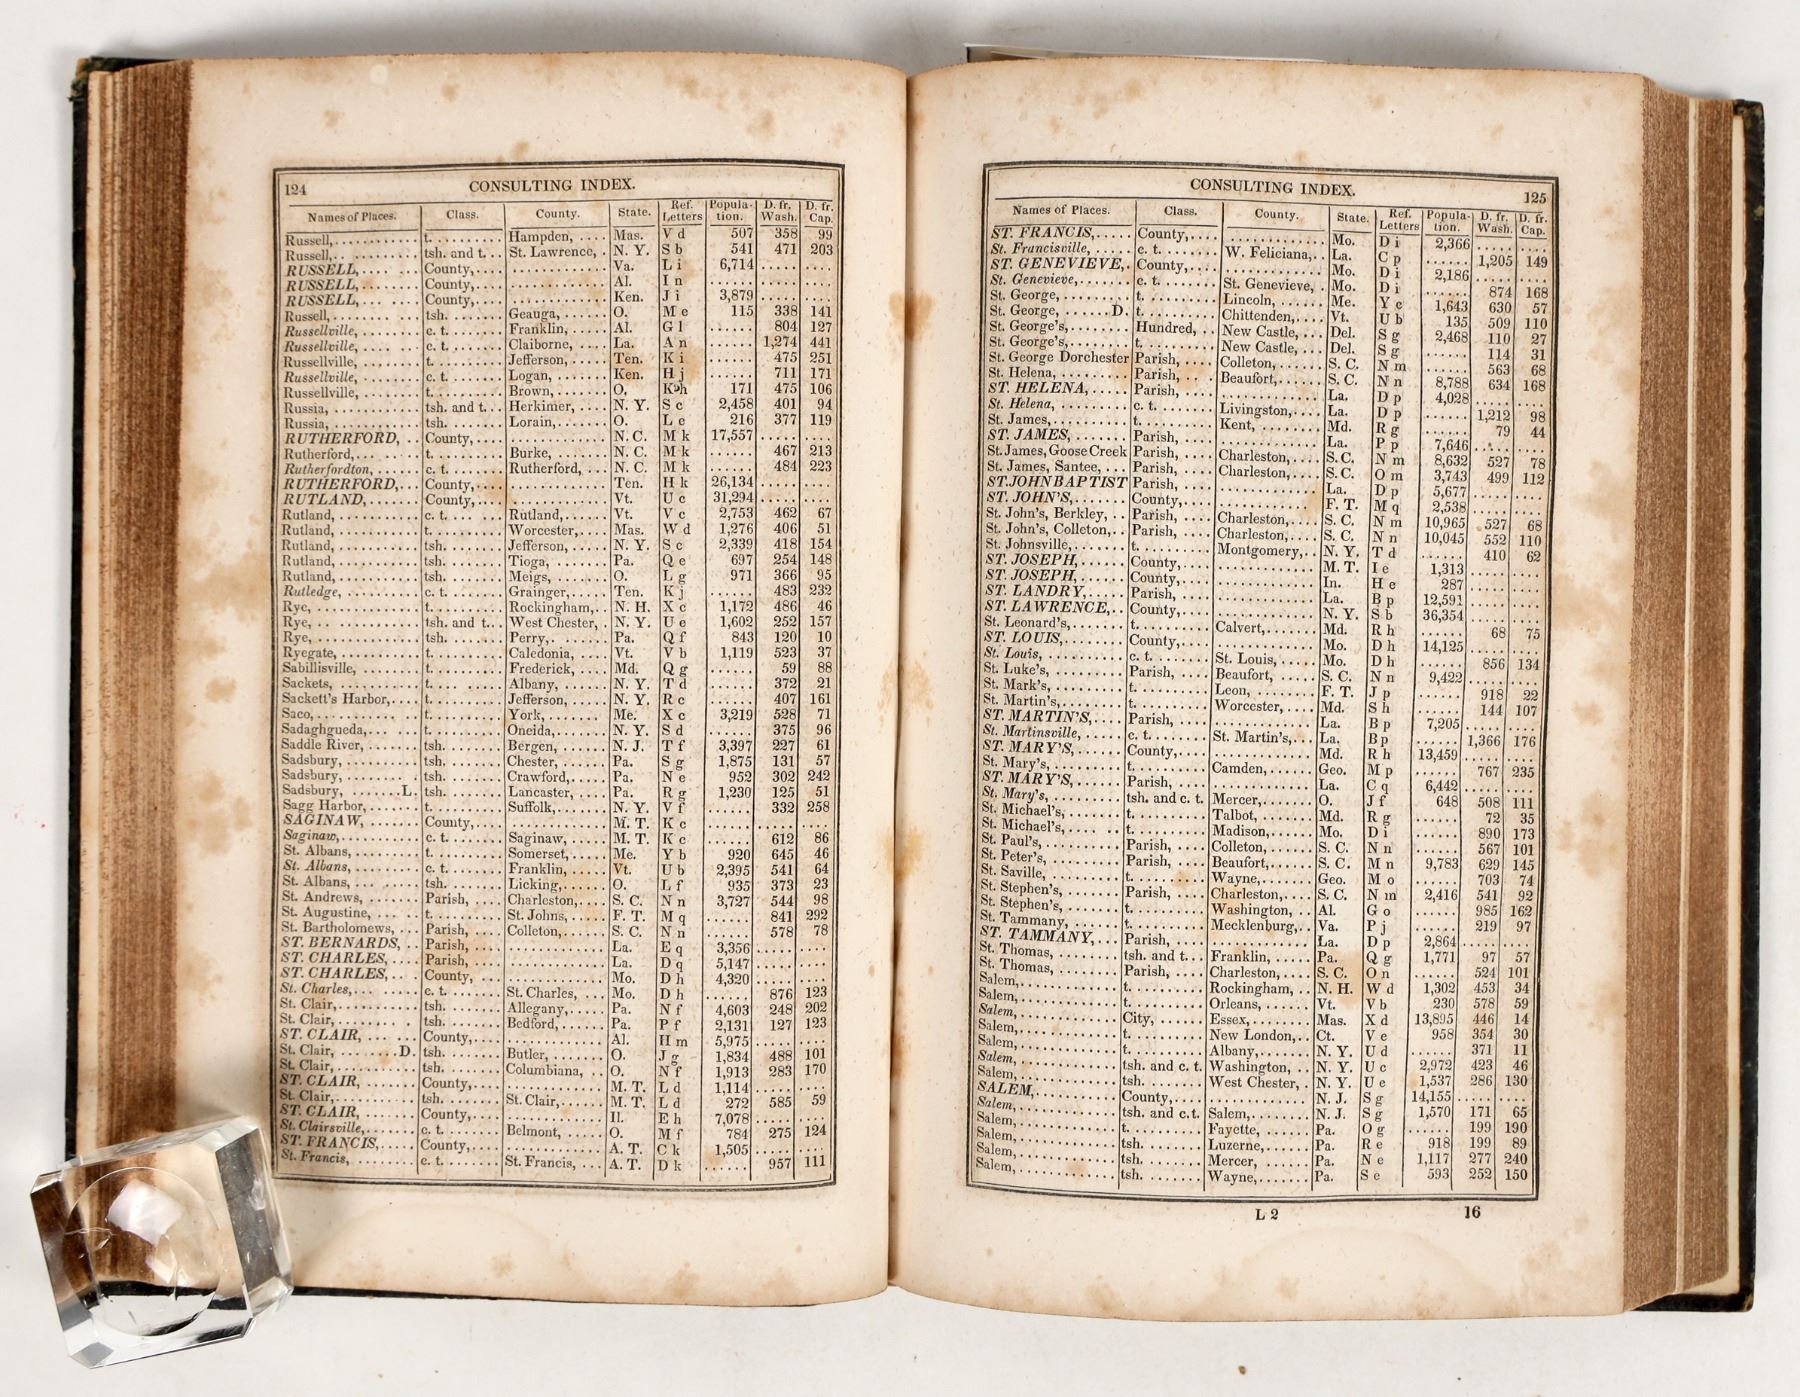 124 CONSULTING INDEX.
Names of Places. Class. County. State. Ref. Letters Population. D. fr. Wash. D. fr. Cap.
Russell, t. Hampden, Mas. V d 507 358 99
Russell, tsh. and t. St. Lawrence, N. Y. S b 541 471 203
RUSSELL, County, Va. L i 6,714
RUSSELL, County, Al. I n
RUSSELL, County, Ken. J i 3,879
Russell, tsh. Geauga, O. M e 115 338 141
Russellville, c. t. Franklin, Al. G l 804 127
Russellville, c. t. Claiborne, La. A n 1,274 441
Russellville, t. Jefferson, Ten. K i 475 251
Russellville, c. t. Logan, Ken. H j 711 171
Russellville, t. Brown, O. K h 171 475 106
Russia, tsh. and t. Herkimer, N. Y. S c 2,458 401 94
Russia, tsh. Lorain, O. L e 216 377 119
RUTHERFORD, County, N. C. M k 17,557
Rutherford, t. Burke, N. C. M k 467 213
Rutherfordton, c. t. Rutherford, N. C. M k 484 223
RUTHERFORD, County, Ten. H k 26,134
RUTLAND, County, Vt. U c 31,294
Rutland, c. t. Rutland, Vt. V c 2,753 462 67
Rutland, t. Worcester, Mas. W d 1,276 406 51
Rutland, tsh. Jefferson, N. Y. S c 2,339 418 154
Rutland, tsh. Tioga, Pa. Q e 697 254 148
Rutland, tsh. Meigs, O. L g 971 366 95
Rutledge, c. t. Grainger, Ten. K j 483 232
Rye, t. Rockingham, N. H. X c 1,172 486 46
Rye, tsh. and t. West Chester, N. Y. U e 1,602 252 157
Rye, tsh. Perry, Pa. Q f 843 120 10
Ryegate, t. Caledonia, Vt. V b 1,119 523 37
Sabillisville, t. Frederick, Md. Q g 59 88
Sackets, t. Albany, N. Y. T d 372 21
Sackett's Harbor, t. Jefferson, N. Y. R c 407 161
Saco, t. York, Me. X c 3,219 528 71
Sadaghgueda, t. Oneida, N. Y. S d 375 96
Saddle River, tsh. Bergen, N. J. T f 3,397 227 61
Sadsbury, tsh. Chester, Pa. S g 1,875 131 57
Sadsbury, tsh. Crawford, Pa. N e 952 302 242
Sadsbury, L. tsh. Lancaster, Pa. R g 1,230 125 51
Sagg Harbor, t. Suffolk, N. Y. V f 332 258
SAGINAW, County, M. T. K c
Saginaw, c. t. Saginaw, M. T. K c 612 86
St. Albans, t. Somerset, Me. Y b 920 645 46
St. Albans, c. t. Franklin, Vt. U b 2,395 541 64
St. Albans, tsh. Licking, O. L f 935 373 23
St. Andrews, Parish, Charleston, S. C. N n 3,727 544 98
St. Augustine, t. St. Johns, F. T. M q 841 292
St. Bartholomews, Parish, Colleton, S. C. N n 578 78
ST. BERNARDS, Parish, La. E q 3,356
ST. CHARLES, Parish, La. D q 5,147
ST. CHARLES, County, Mo. D h 4,320
St. Charles, c. t. St. Charles, Mo. D h 876 123
St. Clair, tsh. Allegany, Pa. N f 4,603 248 202
St. Clair, tsh. Bedford, Pa. P f 2,131 127 123
ST. CLAIR, County, Al. H m 5,975
St. Clair, D. tsh. Butler, O. J g 1,834 488 101
St. Clair, tsh. Columbiana, O. N f 1,913 283 170
ST. CLAIR, County, M. T. L d 1,114
St. Clair, tsh. St. Clair, M. T. L d 272 585 59
ST. CLAIR, County, Il. E h 7,078
St. Clairsville, c. t. Belmont, O. M f 784 275 124
ST. FRANCIS, County, A. T. C k 1,505
St. Francis, c. t. St. Francis, A. T. D k 957 111
CONSULTING INDEX. 125
Names of Places. Class. County. State. Ref. Letters Population. D. fr. Wash. D. fr. Cap.
ST. FRANCIS, County, Mo. D i 2,366
St. Francisville, c. t. W. Feliciana, La. C p 1,205 149
ST. GENEVIEVE, County, Mo. D i 2,186
St. Genevieve, c. t. St. Genevieve, Mo. D i 874 168
St. George, t. Lincoln, Me. Y c 1,643 630 57
St. George, D. t. Chittenden, Vt. U b 135 509 110
St. George's, Hundred, New Castle, Del. S g 2,468 110 27
St. George's, t. New Castle, Del. S g 114 31
St. George Dorchester Parish, Colleton, S. C. N m 563 68
St. Helena, Parish, Beaufort, S. C. N n 8,788 634 168
ST. HELENA, Parish, La. D p 4,028
St. Helena, c. t. Livingston, La. D p 1,212 98
St. James, t. Kent, Md. R g 79 44
ST. JAMES, Parish, La. P p 7,646
St. James, Goose Creek Parish, Charleston, S. C. N m 8,632 527 78
St. James, Santee, Parish, Charleston, S. C. O m 3,743 499 112
ST. JOHN BAPTIST Parish, La. D p 5,677
ST. JOHN'S, County, F. T. M q 2,538
St. John's, Berkley, Parish, Charleston, S. C. N m 10,965 527 68
St. John's, Colleton, Parish, Charleston, S. C. N n 10,045 552 110
St. Johnsville, t. Montgomery, N. Y. T d 410 62
ST. JOSEPH, County, M. T. I e 1,313
ST. JOSEPH, County, In. H e 287
ST. LANDRY, Parish, La. B p 12,591
ST. LAWRENCE, County, N. Y. S b 36,354
St. Leonard's, t. Calvert, Md. R h 68 75
ST. LOUIS, County, Mo. D h 14,125
St. Louis, c. t. St. Louis, Mo. D h 856 134
St. Luke's, Parish, Beaufort, S. C. N n 9,422
St. Mark's, t. Leon, F. T. J p 918 22
St. Martin's, t. Worcester, Md. S h 144 107
ST. MARTIN'S, Parish, La. B p 7,205
St. Martinsville, c. t. St. Martin's, La. B p 1,366 176
ST. MARY'S, County, Md. R h 13,459
St. Mary's, t. Camden, Geo. M p 767 235
ST. MARY'S, Parish, La. C q 6,442
St. Mary's, tsh. and c. t. Mercer, O. J f 648 508 111
St. Michael's, t. Talbot, Md. R g 72 35
St. Michael's, t. Madison, Mo. D i 890 173
St. Paul's, Parish, Colleton, S. C. N n 567 101
St. Peter's, Parish, Beaufort, S. C. M n 9,783 629 145
St. Saville, t. Wayne, Geo. M o 703 74
St. Stephen's, Parish, Charleston, S. C. N m 2,416 541 92
St. Stephen's, t. Washington, Al. G o 985 162
St. Tammany, t. Mecklenburg, Va. P j 219 97
ST. TAMMANY, Parish, La. D p 2,864
St. Thomas, tsh. and t. Franklin, Pa. Q g 1,771 97 57
St. Thomas, Parish, Charleston, S. C. O n 524 101
Salem, t. Rockingham, N. H. W d 1,302 453 34
Salem, t. Orleans, Vt. V b 230 578 59
Salem, City, Essex, Mas. X d 13,895 446 14
Salem, t. New London, Ct. V e 958 354 30
Salem, t. Albany, N. Y. U d 371 11
Salem, tsh. and c. t. Washington, N. Y. U c 2,972 423 46
Salem, tsh. West Chester, N. Y. U e 1,537 286 130
SALEM, County, N. J. S g 14,155
Salem, tsh. and c.t. Salem, N. J. S g 1,570 171 65
Salem, t. Fayette, Pa. O g 199 190
Salem, tsh. Luzerne, Pa. R e 918 199 89
Salem, tsh. Mercer, Pa. N e 1,117 277 240
Salem, tsh. Wayne, Pa. S e 593 252 150
L 2 16